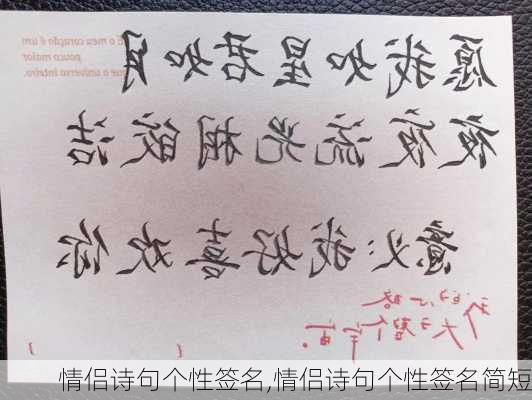 É o meu coração é um
pouco maior
que o universo inteiro.
愿我如星君如月
夜夜流光相皎洁
我好喜欢你
我的心略
大于整个宇宙。
情侣诗句个性签名,情侣诗句个性签名简短